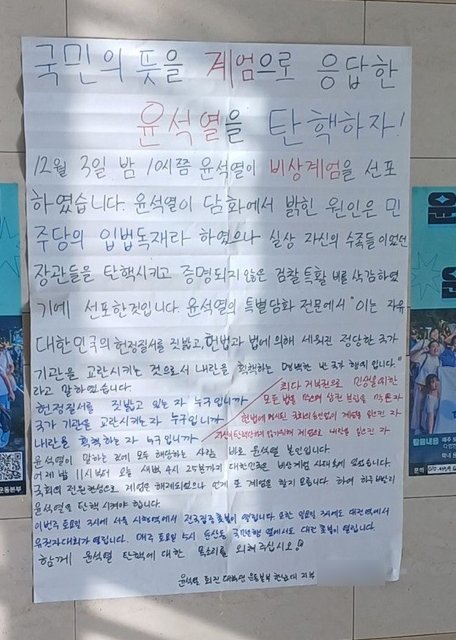 국민의 뜻을 계엄으로 응답한
윤석열을 탄핵하자!
12월 3일 밤 10시쯤 윤석열이 비상계엄을 선포
하였습니다. 윤석열이 담화에서 밝힌 원인은 민
주당의 입법독재라 하였으나 실상 자신의 수족들이었던
장관들을 탄핵시키고 증명되지 않은 검찰 특활비를 삭감하였
기에 선포한것입니다. 윤석열의 특별담화 전문에서 "이는 자유
대한민국의 헌정질서를 짓밟고, 헌법과 법에 의해 세워진 정당한 국가
기관을 교란시키는 것으로써 내란을 획책하는 명백한 반국가 행위 입니다."
라고 말하였습니다.
헌정질서를 짓밟고 있는 자 누구입니까
죄다 거부권으로 민생을 위한
모든 법을 막으며 삼권분립을 막은자
국가 기관을 교란시키는 자 누구입니까
헌법에 명시된 국회의 동의없이 계엄을 일으킨 자
내란을 획책하는 자 누구입니까
계엄으로 내란을 일으킨 자
윤석열이 말하는 것에 모두 해당하는 사람 바로 윤석열 본인입니다.
어제 밤 11시부터 오늘 새벽 4시 25분까지 대한민국은 비상계엄 사태에 있었습니다.
국회의 전원찬성으로 계엄은 해제되었으나 언제 또 계엄을 할지 모릅니다. 하여 하루빨리
윤석열을 탄핵 시켜야 합니다.
이번주 토요일 3시에 서울 시청역에서 전국집중촛불이 열립니다. 또한 일요일 3시에도 대전역에서
유권자대회가 열립니다. 매주 토요일 둔산동 국민은행 앞에서도 대전 촛불이 열립니다.
함께 윤석열 탄핵에 대한 목소리를 외쳐주십시오!
윤석열 퇴진 대학생 운동본부 지부